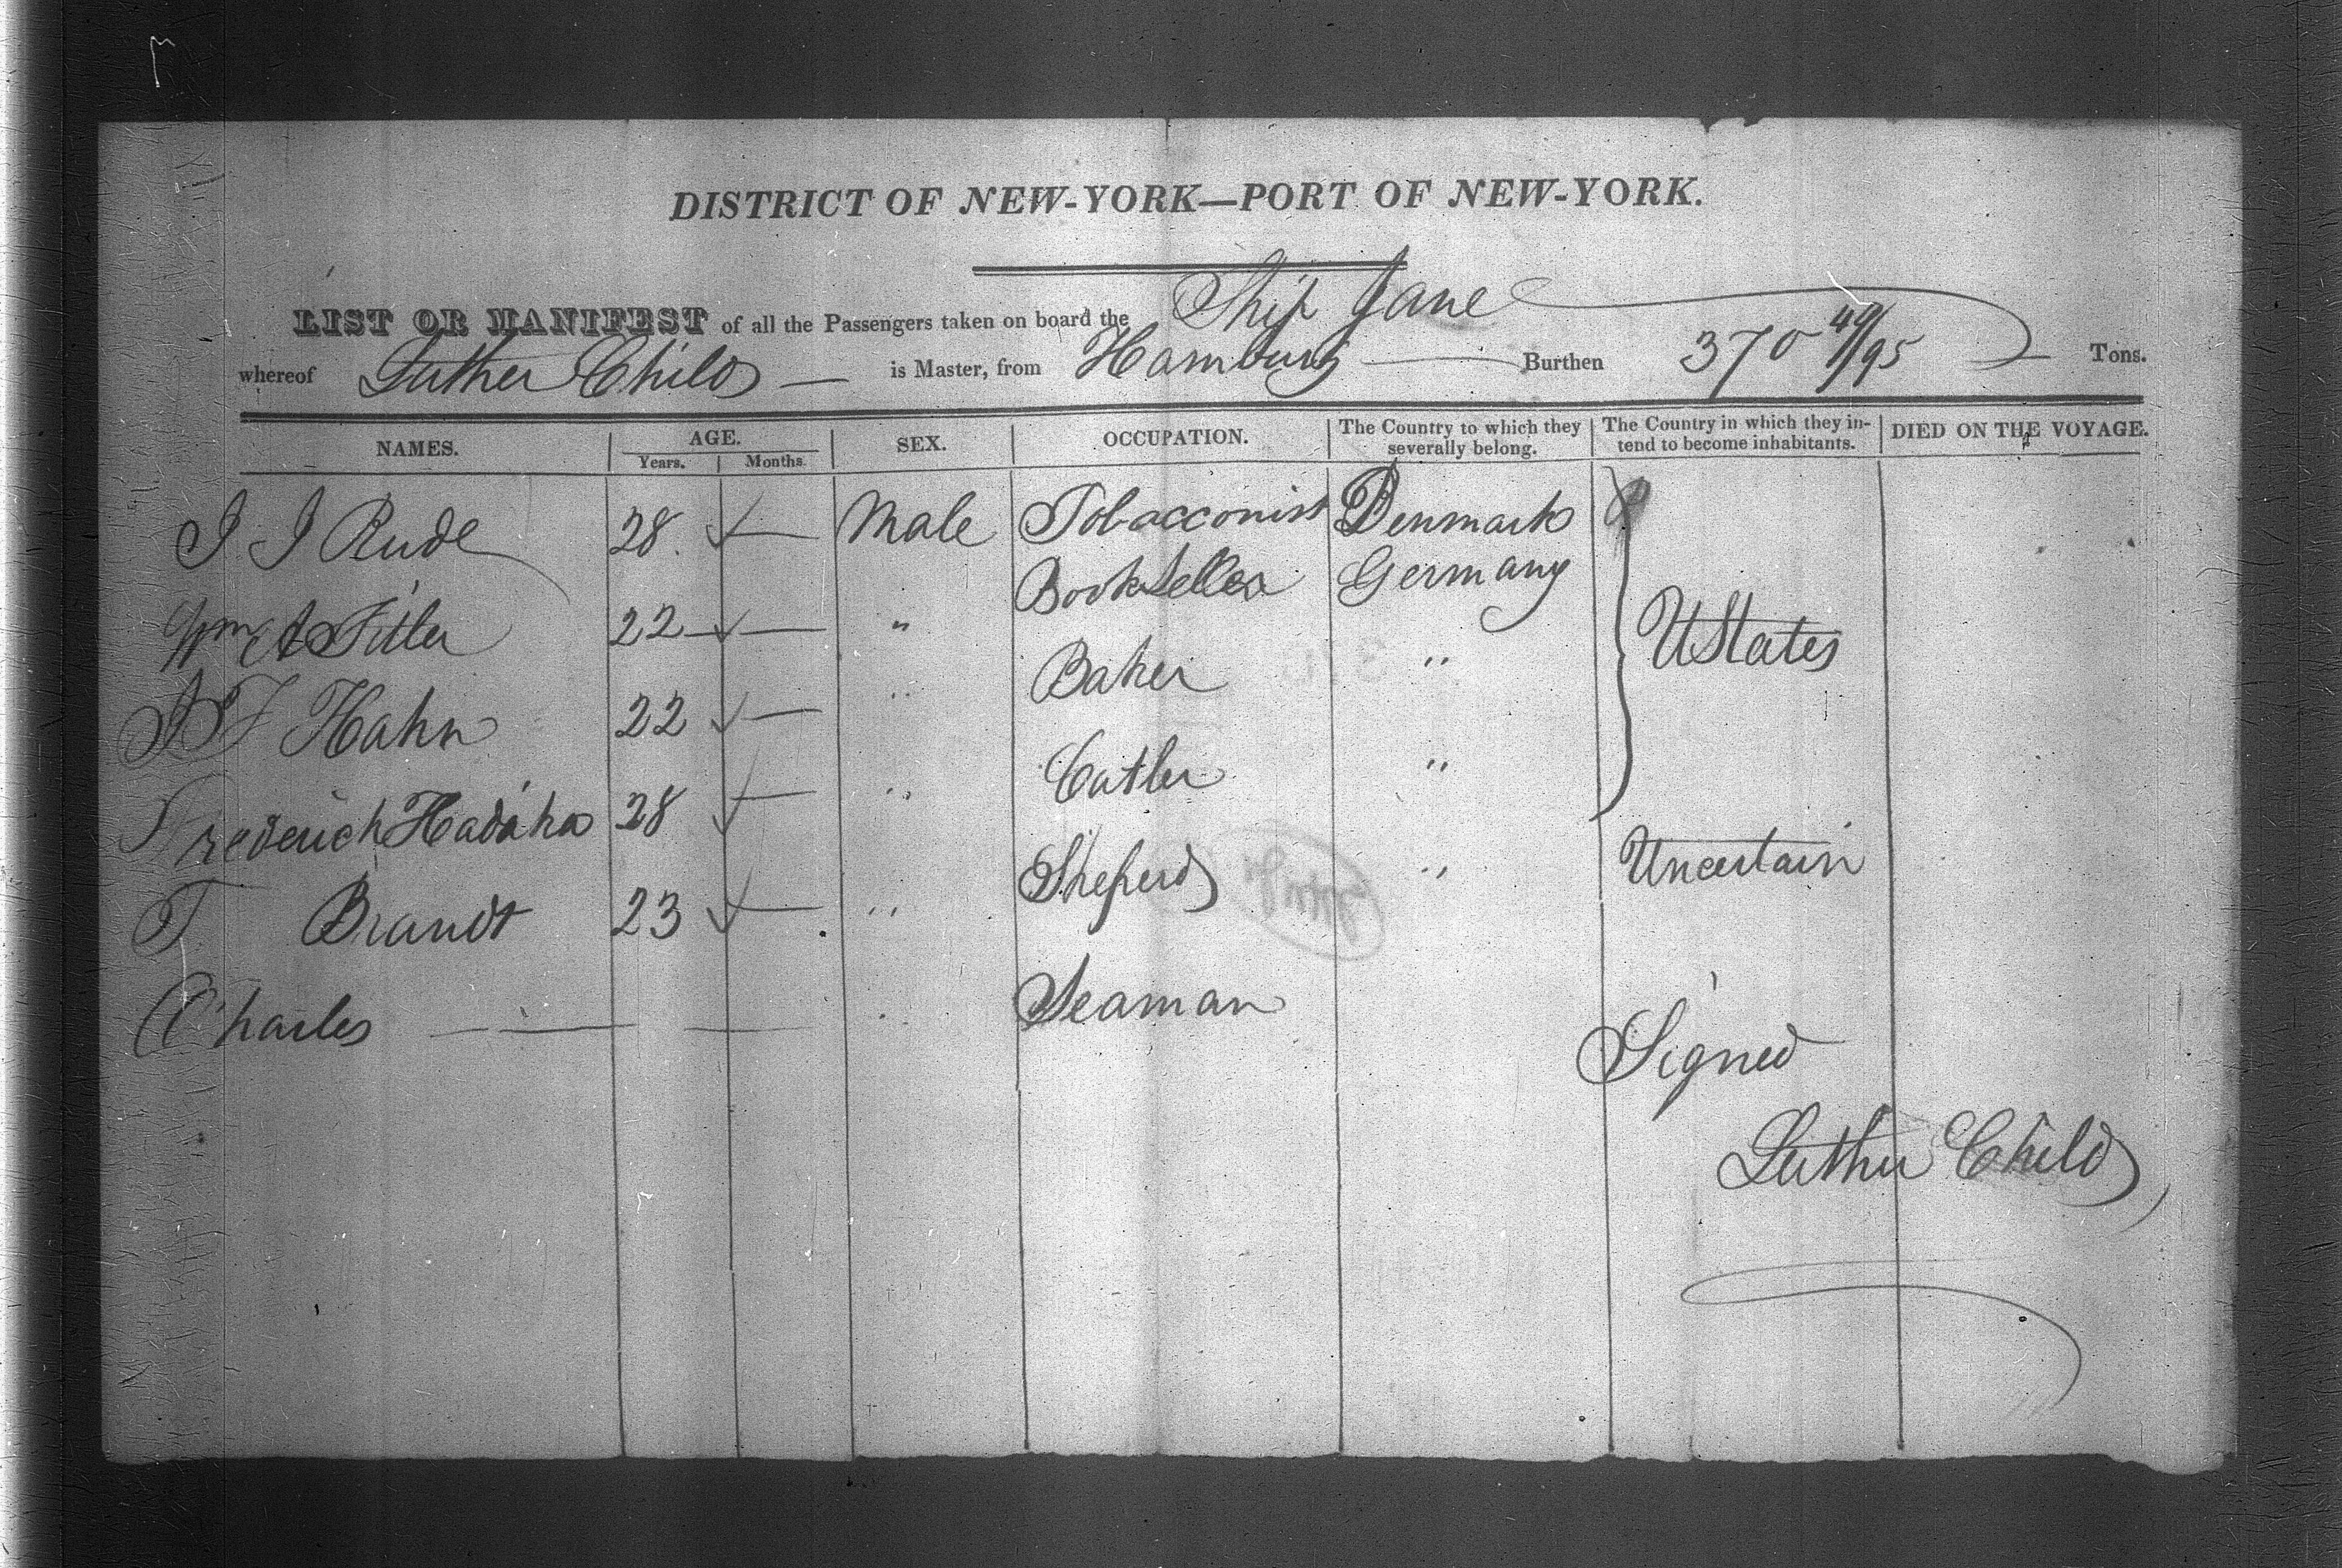 DISTRICT OF NEW-YORK—PORT OF NEW-YORK.
LIST OR MANIFEST of all the Passengers taken on board the Ship Jane
whereof Luther Child is Master, from Hamburg Burthen 370 49/95 Tons.
NAMES. AGE. SEX. OCCUPATION. The Country to which they severally belong. The Country in which they intend to become inhabitants. DIED ON THE VOYAGE.
Years. Months.
J J Rude 28 — Male Tobacconist Denmark
Wm A Fitler 22 — " Bookseller Germany
Hahn 22 — " Baker " UStates
Frederich 28 — " Cutler "
T Brandt 23 — " Sheperd " Uncertain
Charles — — — " Seaman
Signed
Luther Child